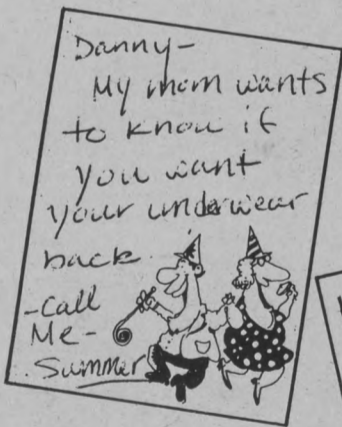 Danny-
My mom wants
to know if
you want
your underwear
back.
-Call
Me-
Summer